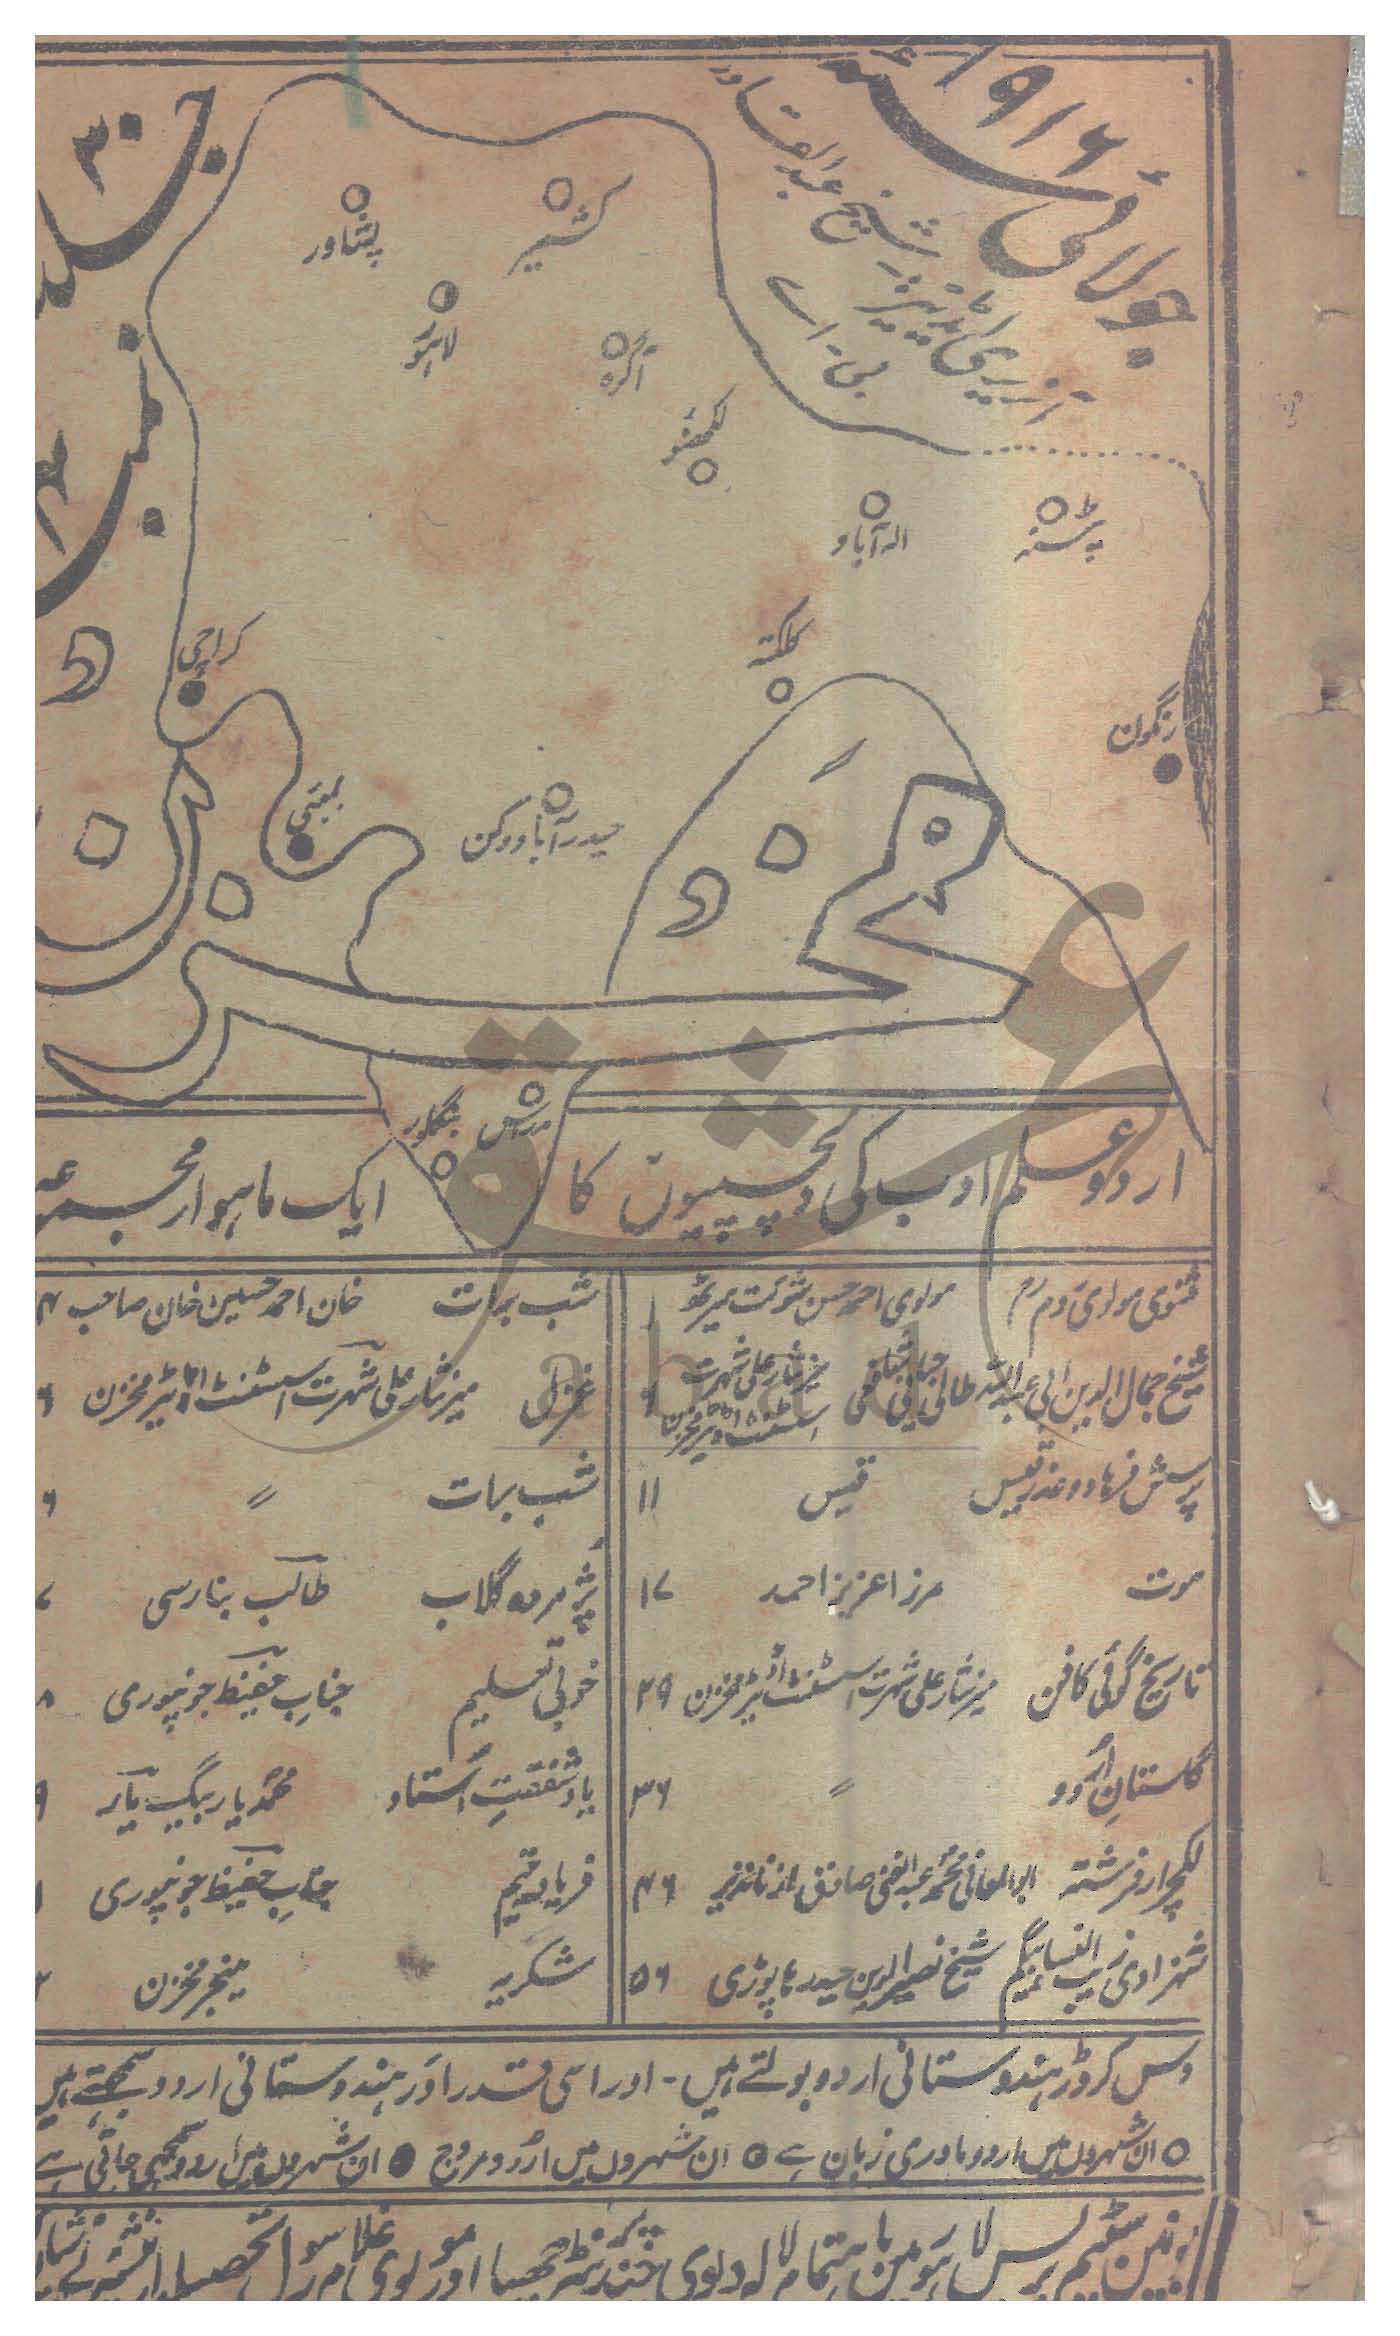 جولائی سنہ ۱۹۱۶ء
جلد ۳۰
نمبر ۴
آنریری ایڈیٹر: شیخ عبدالقادر
بی اے
کشمیر
پشاور
لاہور
آگرہ
لکھنؤ
الہ آباد
پٹنہ
کراچی
کلکتہ
رنگون
بمبئی
حیدرآباد دکن
مخزن
مدراس
بنگلور
اردو علم ادب کی دلچسپیوں کا ایک ماہوار مجموعہ
مثنوی مولوی روم مولوی احمد حسن شوکت میرٹھی ۱
شیخ جمال الدین ابی عبداللہ طائی جیانی شافعی میر نثار علی شہرت اسسٹنٹ اڈیٹر مخزن
پرسش فرہاد و عذر قیس قیس ۱۱
موت مرزا عزیز احمد ۱۷
تاریخ گوئی کا فن میر نثار علی شہرت اسسٹنٹ اڈیٹر مخزن ۲۹
گلستانِ اُردو 〃 ۳۶
لکچرار فرشتہ ابوالمعانی محمد عبدالغنی صادق از ناندیر ۴۶
شہزادی زیب النسا بیگم شیخ نصیرالدین حیدر ہاپوڑی ۵۶
شب برات خان احمد حسین خان صاحب
غزل میر نثار علی شہرت اسسٹنٹ اڈیٹر مخزن
شب برات 〃
پژمردہ گلاب طالب بنارسی
خوبی تعلیم جناب حفیظ جونپوری
یاد شفقتِ استاد محمد یار بیگ یار
فریاد یتیم جناب حفیظ جونپوری
شکریہ منیجر مخزن
دس کروڑ ہندوستانی اردو بولتے ہیں۔ اور اسی قدر اور ہندوستانی اردو سمجھتے ہیں
○ ان شہروں میں اردو مادری زبان ہے ◉ ان شہروں میں اُردو مروج ● ان شہروں میں اردو سمجھی جاتی ہے
یونین سٹیم پریس لاہور میں باہتمام لالہ دیوی چند پرنٹر چھپا اور مولوی غلام رسول